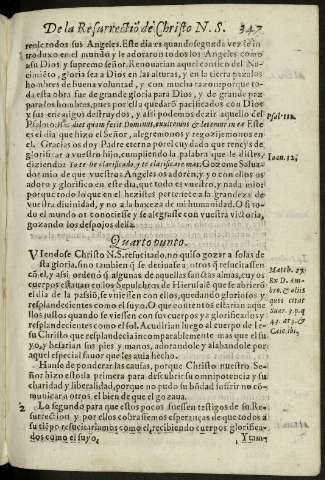 De la Resurrectiõ de Christo N. S. 347
renle todos sus Angeles. Este dia es quando segunda vez se in
troduxo en el mundo y le adoraron todos los Angeles como
a su Dios y supremo señor. Renouarian aquel cantico del Na-
cimiẽto, gloria sea a Dios en las alturas, y en la tierra paz a los
hombres de buena voluntad, y con mucha razon porque to-
da esta obra fue de grande gloria para Dios, y de grande paz
para los hombres, pues por ella quedarõ pacificados con Dios
y sus enemigos destruydos, y assi podemos dezir aquello del
Psalmo. Hæc dies quam fecit Dominus, exultemus & letemur in ea. Este
es el dia que hizo el Señor, alegremonos y regozijemonos en
el. Gracias os doy Padre eterno por el cuydado que teneys de
glorificar a vuestro hijo, cumpliendo la palabra que le distes,
diziendo: Yate he clarificado, y te clarificare mas: Gozome Salua-
dor mio de que vuestros Angeles os adorẽ, y yo con ellos os
adoro y glorifico en este dia, que todo es vuestro, y nada mio:
porque todo lo bueno que en el hezistes pertenece a la grandeza de
vuestra diuinidad, y no a la baxeza de mi humanidad. O si to-
do el mundo os conociesse y se alegrasse con vuestra victoria,
gozando los despojos della.
Psal. 117.
Ioan. 12.
Quarto punto.
VIendose Christo N. S. resucitado, no quiso gozar a solas de
sta gloria, sino tambien q̃ se deriuasse a otros q̃ resucitassen
cõ el, y assi ordenò q̃ algunas de aquellas sanctas almas, cuyos
cuerpos estauan en los Sepulchros de Hierusalẽ que se abrieron
el dia de la passiõ, se viniessen con ellos, quedando gloriosos y
resplandecientes como el suyo. O que contentos estarian aque
llos justos quando se viessen con sus cuerpos ya glorificados y
resplandecientes como el sol. Acudirian luego al cuerpo de Ie-
su Christo que resplandecia incomparablemente mas que el su-
yo, y besarian sus pies y manos, adorandole y alabandole por
aquel especial fauor que les auia hecho.
Matth. 27.
Ex D. Am-
bro. & aliis
quos citat
Suar. 3. p. q
Hanse de ponderar las causas, porque Christo nuestro Se-
ñor hizo ello: la primera para descubrir su omnipotencia y su
charidad y liberalidad, porque no pudo su bõdad sufrir no co-
municar a otros el bien de que el gozaua.
2 Lo segundo para que estos pocos fuessen testigos de su Re-
surrection y por ellos cobrassemos esperanças de que todos a
su tiẽpo resucitariamos como el, recibiendo cuerpos glorifica-
dos como el suyo.